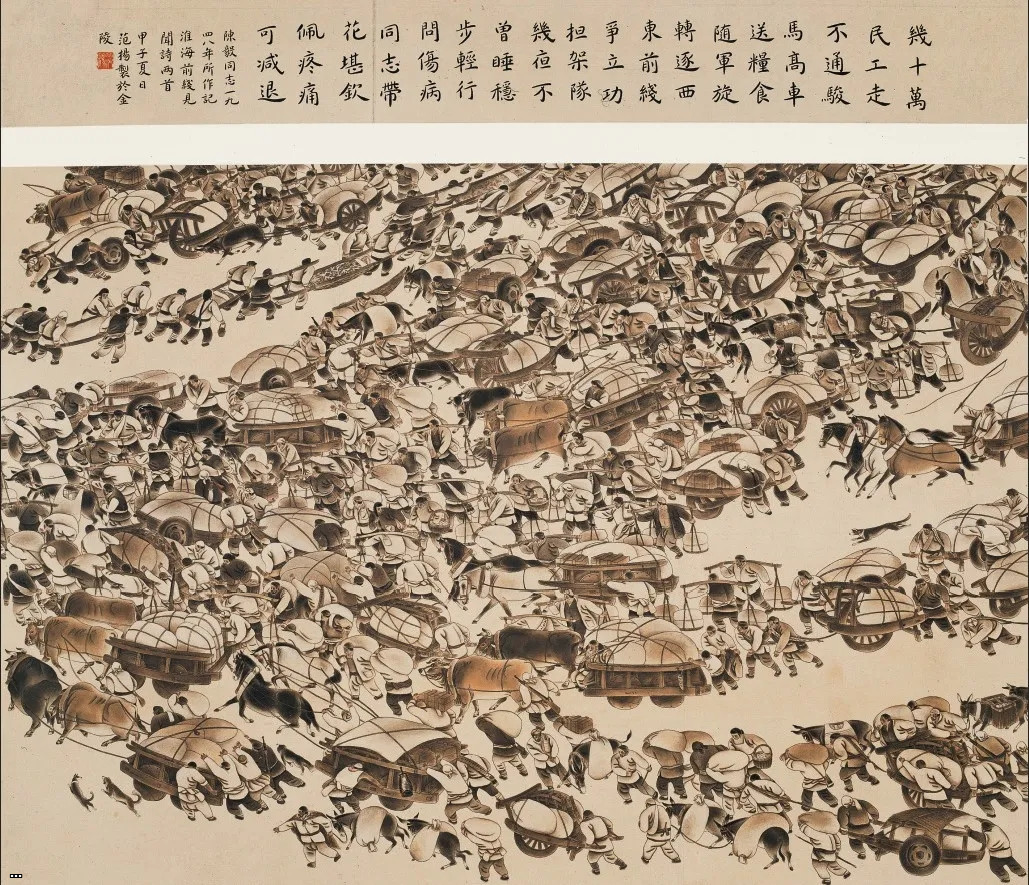 幾十萬
民工走
不通駿
馬髙車
送糧食
隨軍旋
轉逐西
東前綫
爭立功
担架隊
幾亱不
曽睡穩
步輕行
問傷病
同志帶
花堪欽
佩疼痛
可减退
陳毅同志一九
四八年所作記
淮海前綫見
聞詩兩首
甲子夏日
范揚製於金
陵